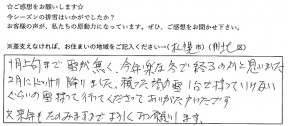 ☆ご感想をお願いします☆
今シーズンの排雪はいかがでしたか？
お客様の声が、私たちの原動力になっています。ぜひ、ご感想をお聞かせ下さい。
※差支えなければ、お住まいの地域をご記入ください→（札幌市）（　区）
1月上旬まで雪が無く、今年は楽な冬で終るのかと思いました
2月にドッカリ降りました、積った時の雪1台で持っていけない
ぐらいの雪持って行ってくださってありがたかったです
又来年もたのみますのでよろしくお願いします。